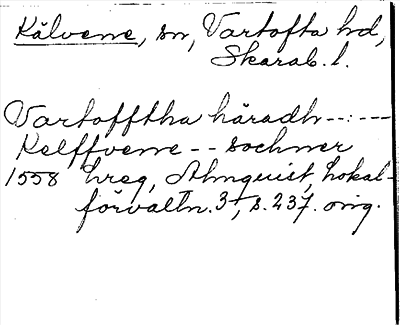 Kälvene, sn, Vartofta hd,
Skarab. l.
Vartofftha häradh--:---
Kelffvene -- sochner
1558 hreg, Almquist, Lokal-
förvaltn. 3, s. 237. orig.